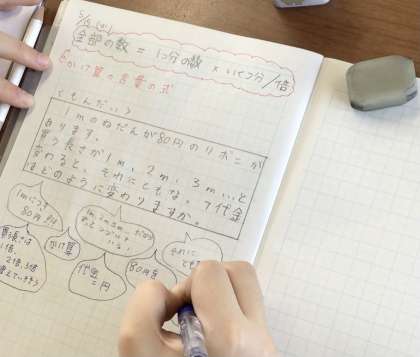 5/15(水)
全部の数 = 1つ分の数 × いくつ分/倍
かけ算の言葉の式
ともんだい>
1mのねだんが80円のリボンが
あります。
買う長さが1m、2m、3m…と
変わると、それにともなって代金
はどのように変わりますか。
1mにつき
80円
かけ算
代金
=円
80円を
それに
2倍、3倍